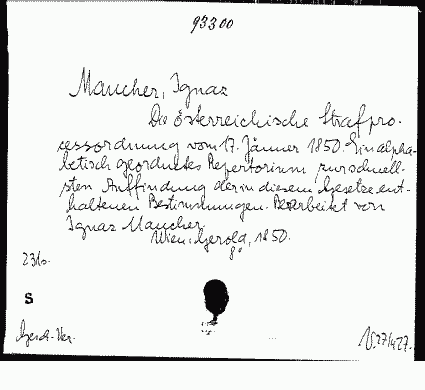 93300
Maucher, Ignaz
Die österreichische Strafpro-
cessordnung vom 17. Jänner 1850. Ein alpha-
betisch geordnetes Repertorium zur schnell-
sten Auffindung der in diesem Gesetze ent-
haltenen Bestimmungen. Bearbeitet von
Ignaz Maucher.
Wien: Gerold, 1850.
8°
231 S.
S